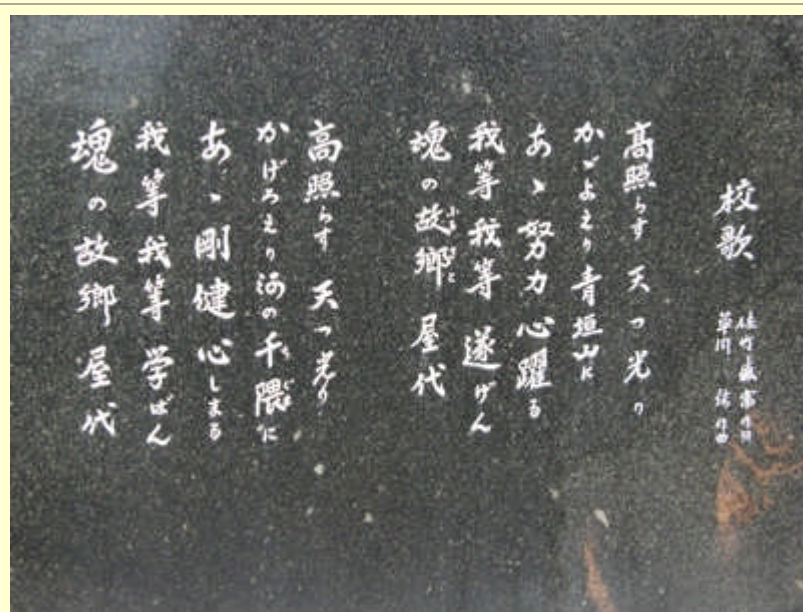 校歌
草川 信作曲
髙照らす 天つ光り
かゞよえり 青垣山に
あゝ努力 心躍る
我等我等 遂げん
塊の故郷 屋代
高照らす 天つ光り
かげろえり 河の千隈に
あゝ剛健 心しまる
我等我等 学ばん
塊の故郷 屋代